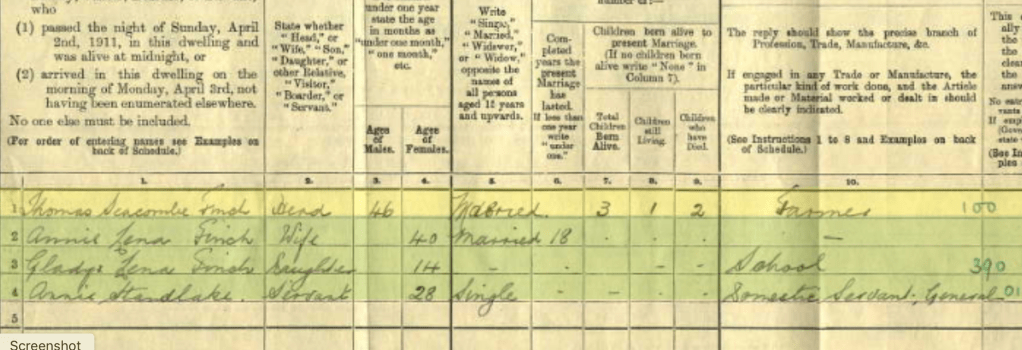 who
(1) passed the night of Sunday, April
2nd, 1911, in this dwelling and
was alive at midnight, or
(2) arrived in this dwelling on the
morning of Monday, April 3rd, not
having been enumerated elsewhere.
No one else must be included.
(For order of entering names see Examples on
back of Schedule.)
State whether
"Head," or
"Wife," "Son,"
"Daughter," or
other Relative,
"Visitor,"
"Boarder," or
"Servant."
under one year
state the age
in months as
"under one month,"
"one month,"
etc.
Ages
of
Males.
Ages
of
Females.
Write
"Single,"
"Married,"
"Widower,"
or "Widow,"
opposite the
names of
all persons
aged 15 years
and upwards.
Com-
pleted
years the
present
Marriage
has
lasted.
If less than
one year
write
"under
one."
Children born alive to
present Marriage.
(If no children born
alive write "None" in
Column 7).
Total
Children
Born
Alive.
Children
still
Living.
Children
who
have
Died.
The reply should show the precise branch of
Profession, Trade, Manufacture, &c.
If engaged in any Trade or Manufacture, the
particular kind of work done, and the Article
made or Material worked or dealt in should
be clearly indicated.
(See Instructions 1 to 8 and Examples on back
of Schedule.)
This
1. 2. 3. 4. 5. 6. 7. 8. 9. 10.
1 Thomas Seacombe Finch Head 46 Married. 3 1 2 Farmer 100
2 Annie Lena Finch Wife 40 Married 18 . . . —
3 Gladys Lena Finch Daughter 14 - - - - School 390
4 Annie Standlake. Servant 28 Single - . - - Domestic Servant, General
5
Screenshot